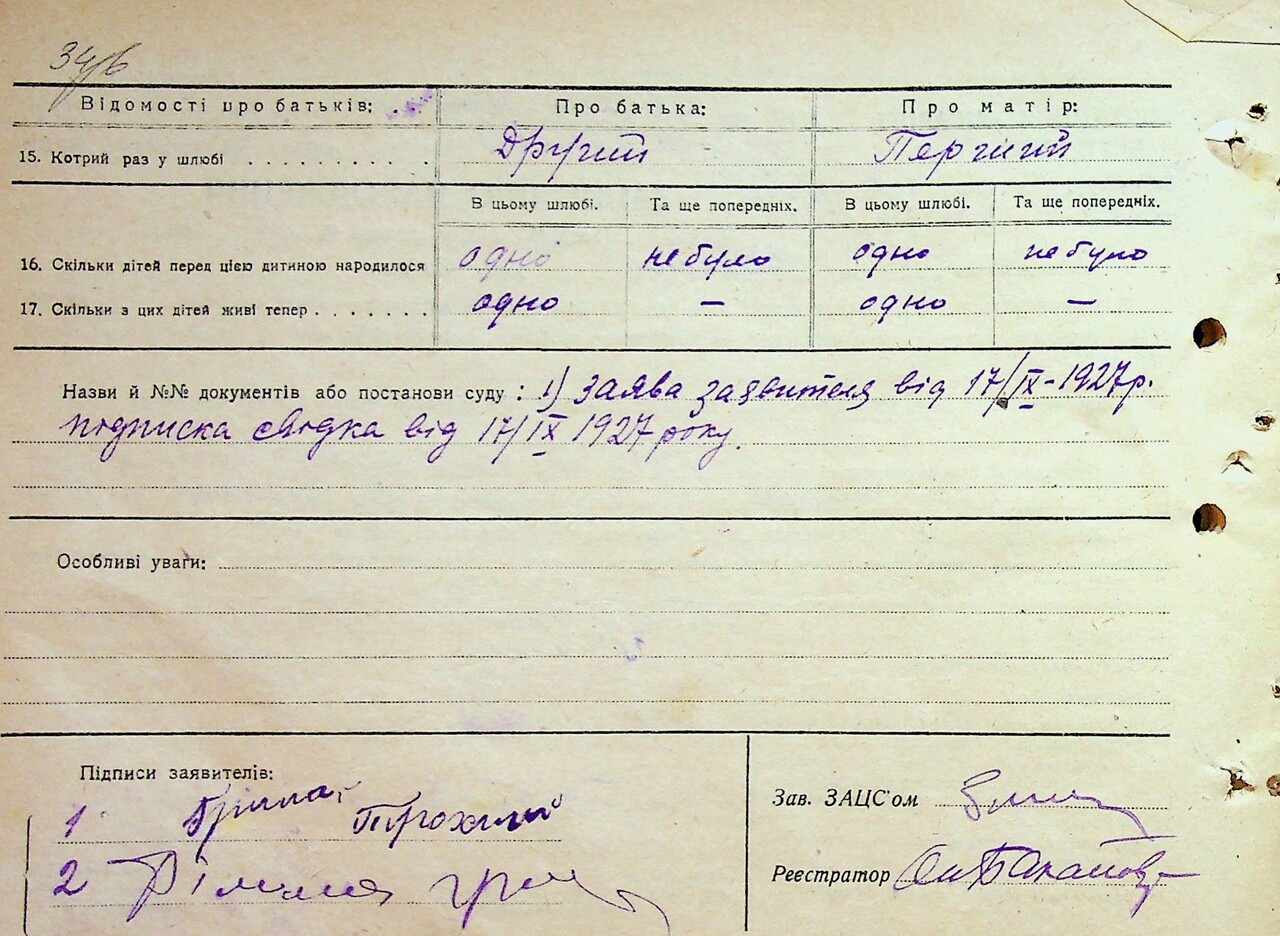 Відомості про батьків:
Про батька:
Про матір:
15. Котрий раз у шлюбі
Другий
Перший
В цьому шлюбі.
Та ще попередніх.
В цьому шлюбі.
Та ще попередніх.
16. Скільки дітей перед цією дитиною народилося
одно
не було
одно
не було
17. Скільки з цих дітей живі тепер
одно
—
одно
—
Назви й №№ документів або постанови суду : 1) Заява заявителя від 17/IX-1927р.
подписка свідка від 17/IX 1927 року.
Особливі уваги:
Підписи заявителів:
1
2
Зав. ЗАЦС'ом
Реєстратор